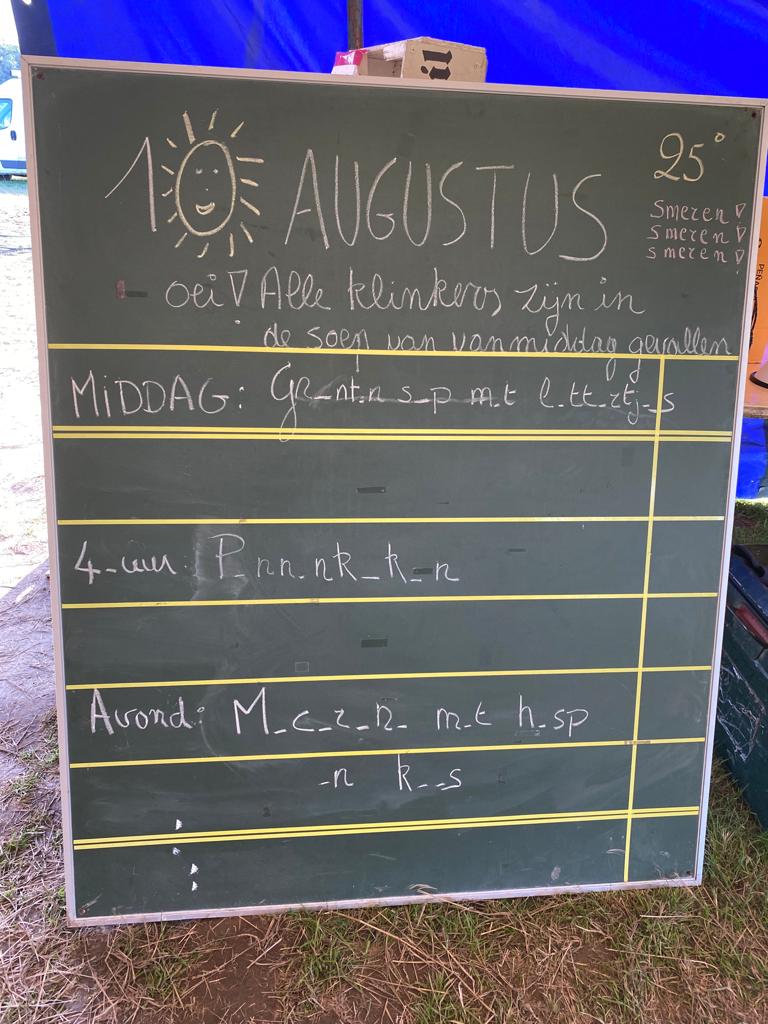 il
10 AUGUSTUS
25°
Smeren!
smeren!
smeren!
oei! Alle klinkers zijn in
de soep van vanmiddag gevallen
MiDDAG: Gr_nt.n s_p m.t l_tt_rtj_s
4-uur: P_nn.nk_k_n
Avond: M_c_r_n_ m_t h_sp
_n k__s